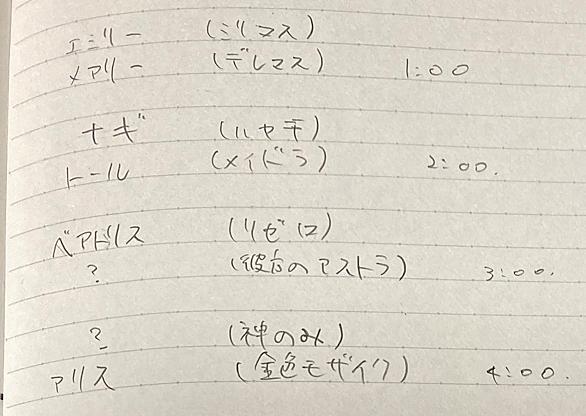 エミリー (ミリマス)
メアリー (デレマス) 1:00
ナギ (ハヤテ)
トール (メイドラ) 2:00.
ベアトリス (リゼロ)
? (彼方のアストラ) 3:00.
? (神のみ)
アリス (金色モザイク) 4:00.